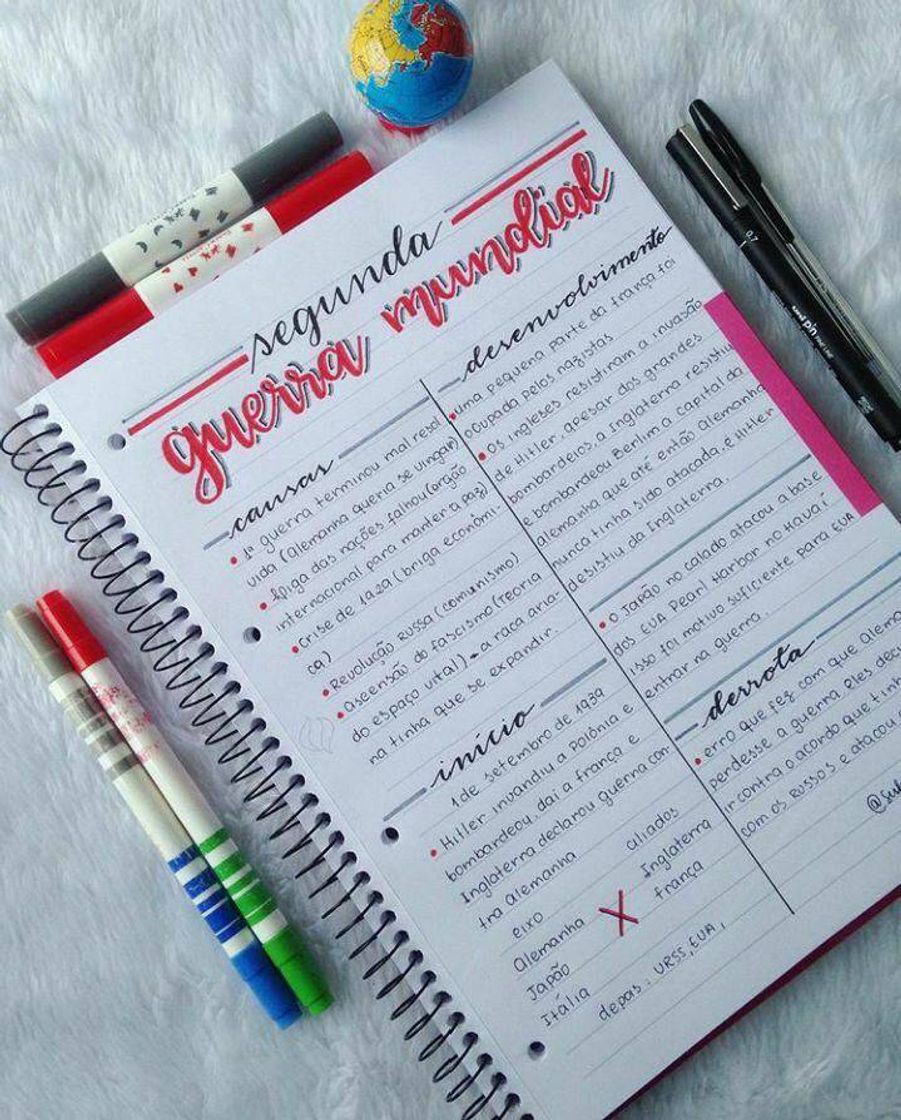 segunda
guerra mundial
causas
• 1ª guerra terminou mal resol
vida (alemanha queria se vingar)
• liga das nações falhou (orgão
internacional para manter a paz)
• crise de 1929 (briga econômi-
ca)
• Revolução Russa (comunismo)
• ascensão do fascismo (teoria
do espaço vital) → a raça aria-
na tinha que se expandir.
início
1 de setembro de 1939
• Hitler invandiu a Polônia e
bombardeou, daí a frança e
Inglaterra declarou guerra con-
tra alemanha
eixo aliados
Alemanha X Inglaterra
Japão frança
Itália
depois: URSS, EUA,
desenvolvimento
• uma pequena parte da frança foi
ocupada pelos nazistas
• os ingleses resistiram a invasão
de Hitler, apesar dos grandes
bombardeios, a Inglaterra resistiu
e bombardeou Berlim a capital da
alemanha que até então alemanha
nunca tinha sido atacada, e Hitler
desistiu da Inglaterra.
• o Japão no calado atacou a base
dos EUA Pearl Harbor no Havaí
isso foi motivo suficiente para EUA
entrar na guerra.
derrota
• erro que fez com que
perdesse a guerra eles
ir contra o acordo que
com os Russos e atacou
0.7
uni pin